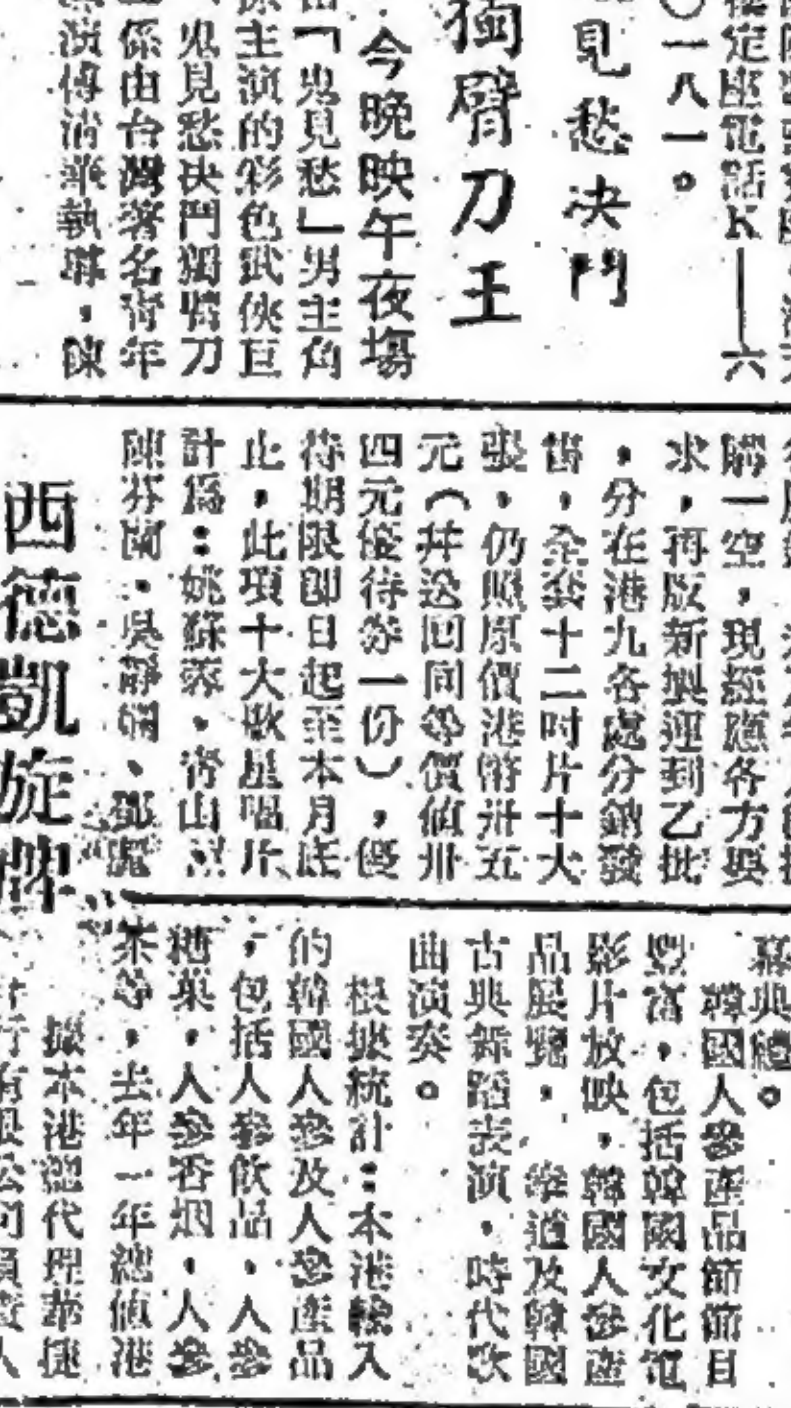 模定座電話K——六
〇一八一。
見愁决鬥
獨臂刀王
今晚映午夜塲
由「鬼見愁」男主角
係主演的彩色武俠巨
鬼見愁决鬥獨臂刀
係由台灣著名青年
演傅清華執導，陳
購一空，現經應各方要
求，再版新興運到乙批
，分在港九各處分銷發
售，全套十二吋片十大
張，仍照原價港幣卅五
元（并送回同等價值卅
四元優待券一份），優
待期限即日起至本月底
止，此項十大歌星唱片
計爲：姚蘇蓉，青山
陳芬蘭、吳靜嫻、鄧麗
西德凱旋牌
幕典禮。
韓國人參產品節節目
豐富，包括韓國文化電
影片放映，韓國人參產
品展覽，拳道及韓國
古典舞蹈表演，時代歌
曲演奏。
根據統計：本港輸入
的韓國人參及人參產品
，包括人參飲品，人參
糖菓，人參香烟，人參
茶等，去年一年總值港
據本港總代理華捷
行有限公司負責人